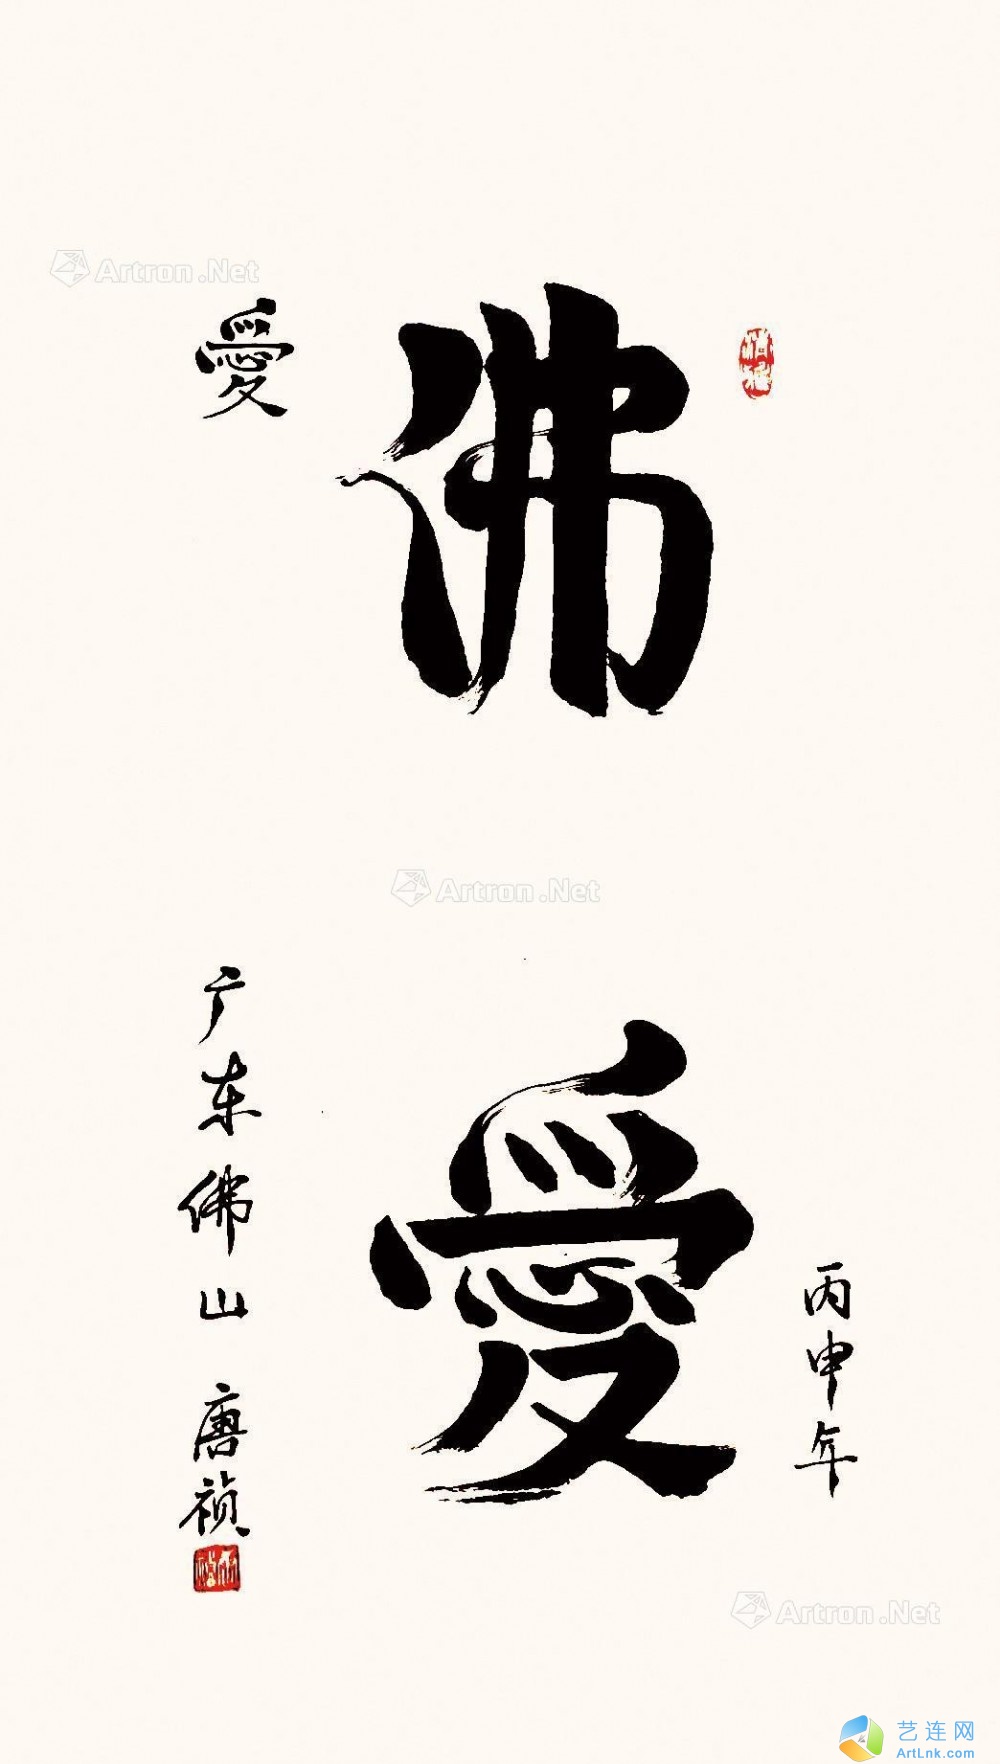 佛
愛
丙申年
愛
广东佛山 唐祯
Artron.Net
Artron.Net
Artron.Net
艺连网
ArtLnk.com